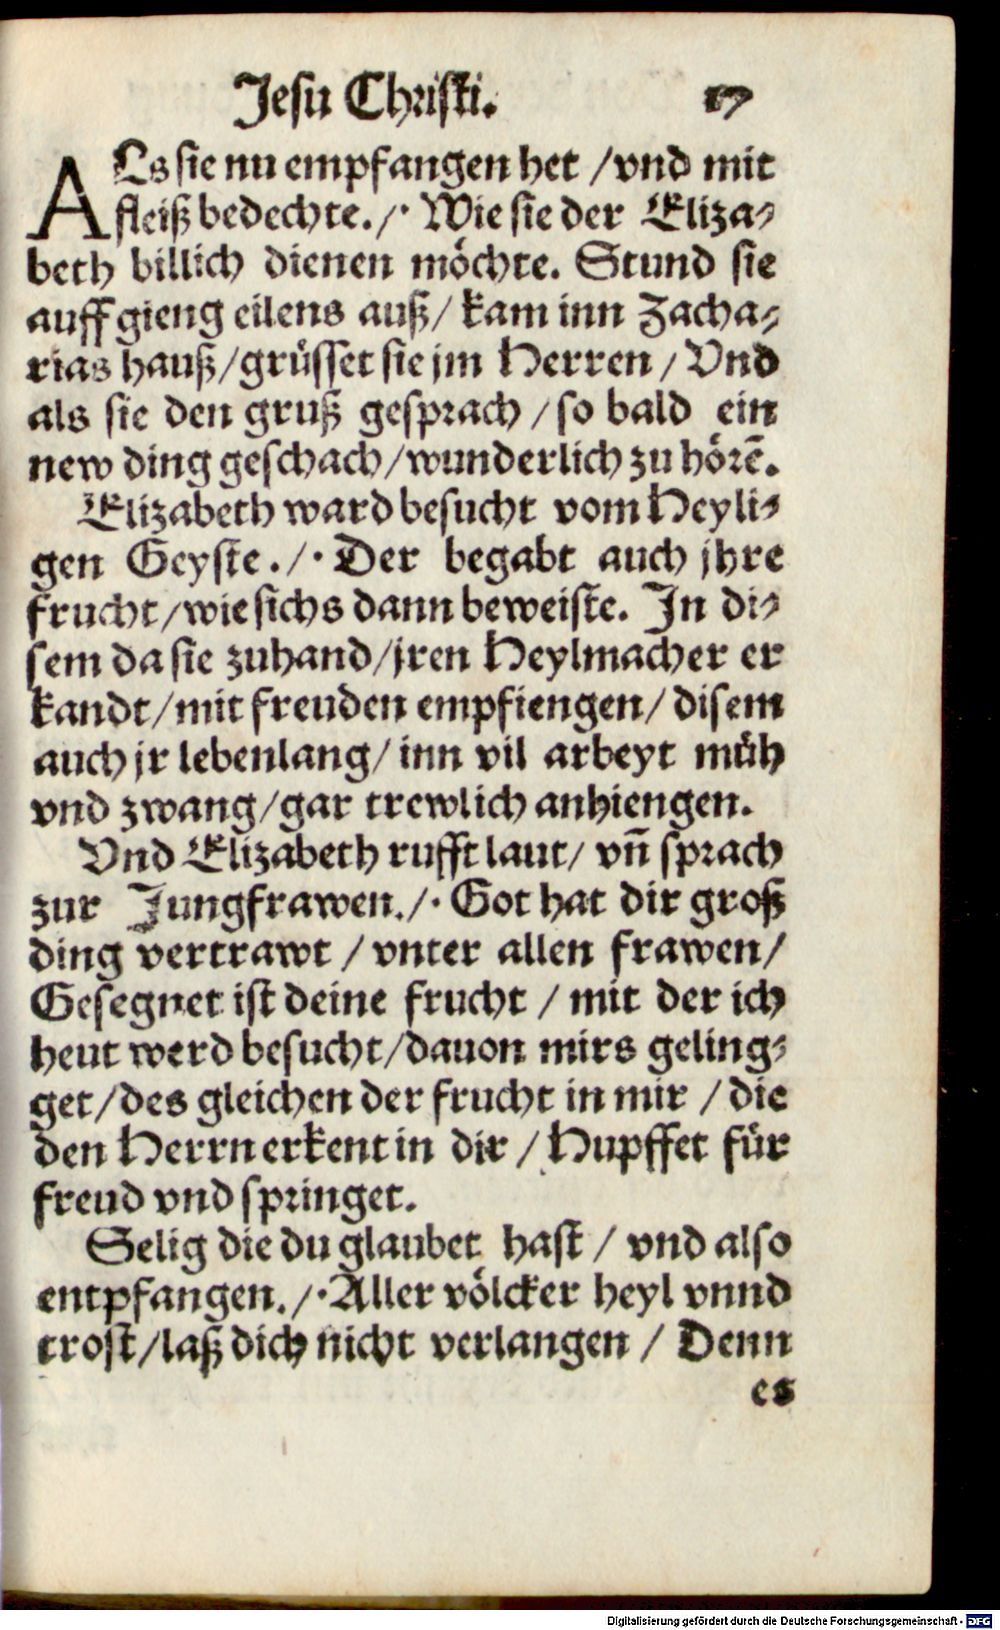 Jesu Christi. 17
ALs sie nu empfangen het / vnd mit
fleiß bedechte./· Wie sie der Eliza⸗
beth billich dienen möchte. Stund sie
auff gieng eilens auß / kam inn Zacha⸗
rias hauß / grüsset sie jm Herren / Vnd
als sie den gruß gesprach / so bald ein
new ding geschach / wunderlich zu hörē.
Elizabeth ward besucht vom Heyli⸗
gen Geyste./· Der begabt auch jhre
frucht / wie sichs dann beweiste. In di⸗
sem da sie zuhand / jren Heylmacher er
kandt / mit freuden empfiengen / disem
auch jr lebenlang / inn vil arbeyt müh
vnd zwang / gar trewlich anhiengen.
Vnd Elizabeth rufft laut / vn̄ sprach
zur Jungfrawen./· Got hat dir groß
ding vertrawt / vnter allen frawen /
Gesegnet ist deine frucht / mit der ich
heut werd besucht / dauon mirs geling⸗
get / des gleichen der frucht in mir / die
den Herrn erkent in dir / Hupffet für
freud vnd springet.
Selig die du glaubet hast / vnd also
entpfangen./· Aller völcker heyl vnnd
trost / laß dich nicht verlangen / Denn
es
Digitalisierung gefördert durch die Deutsche Forschungsgemeinschaft - DFG